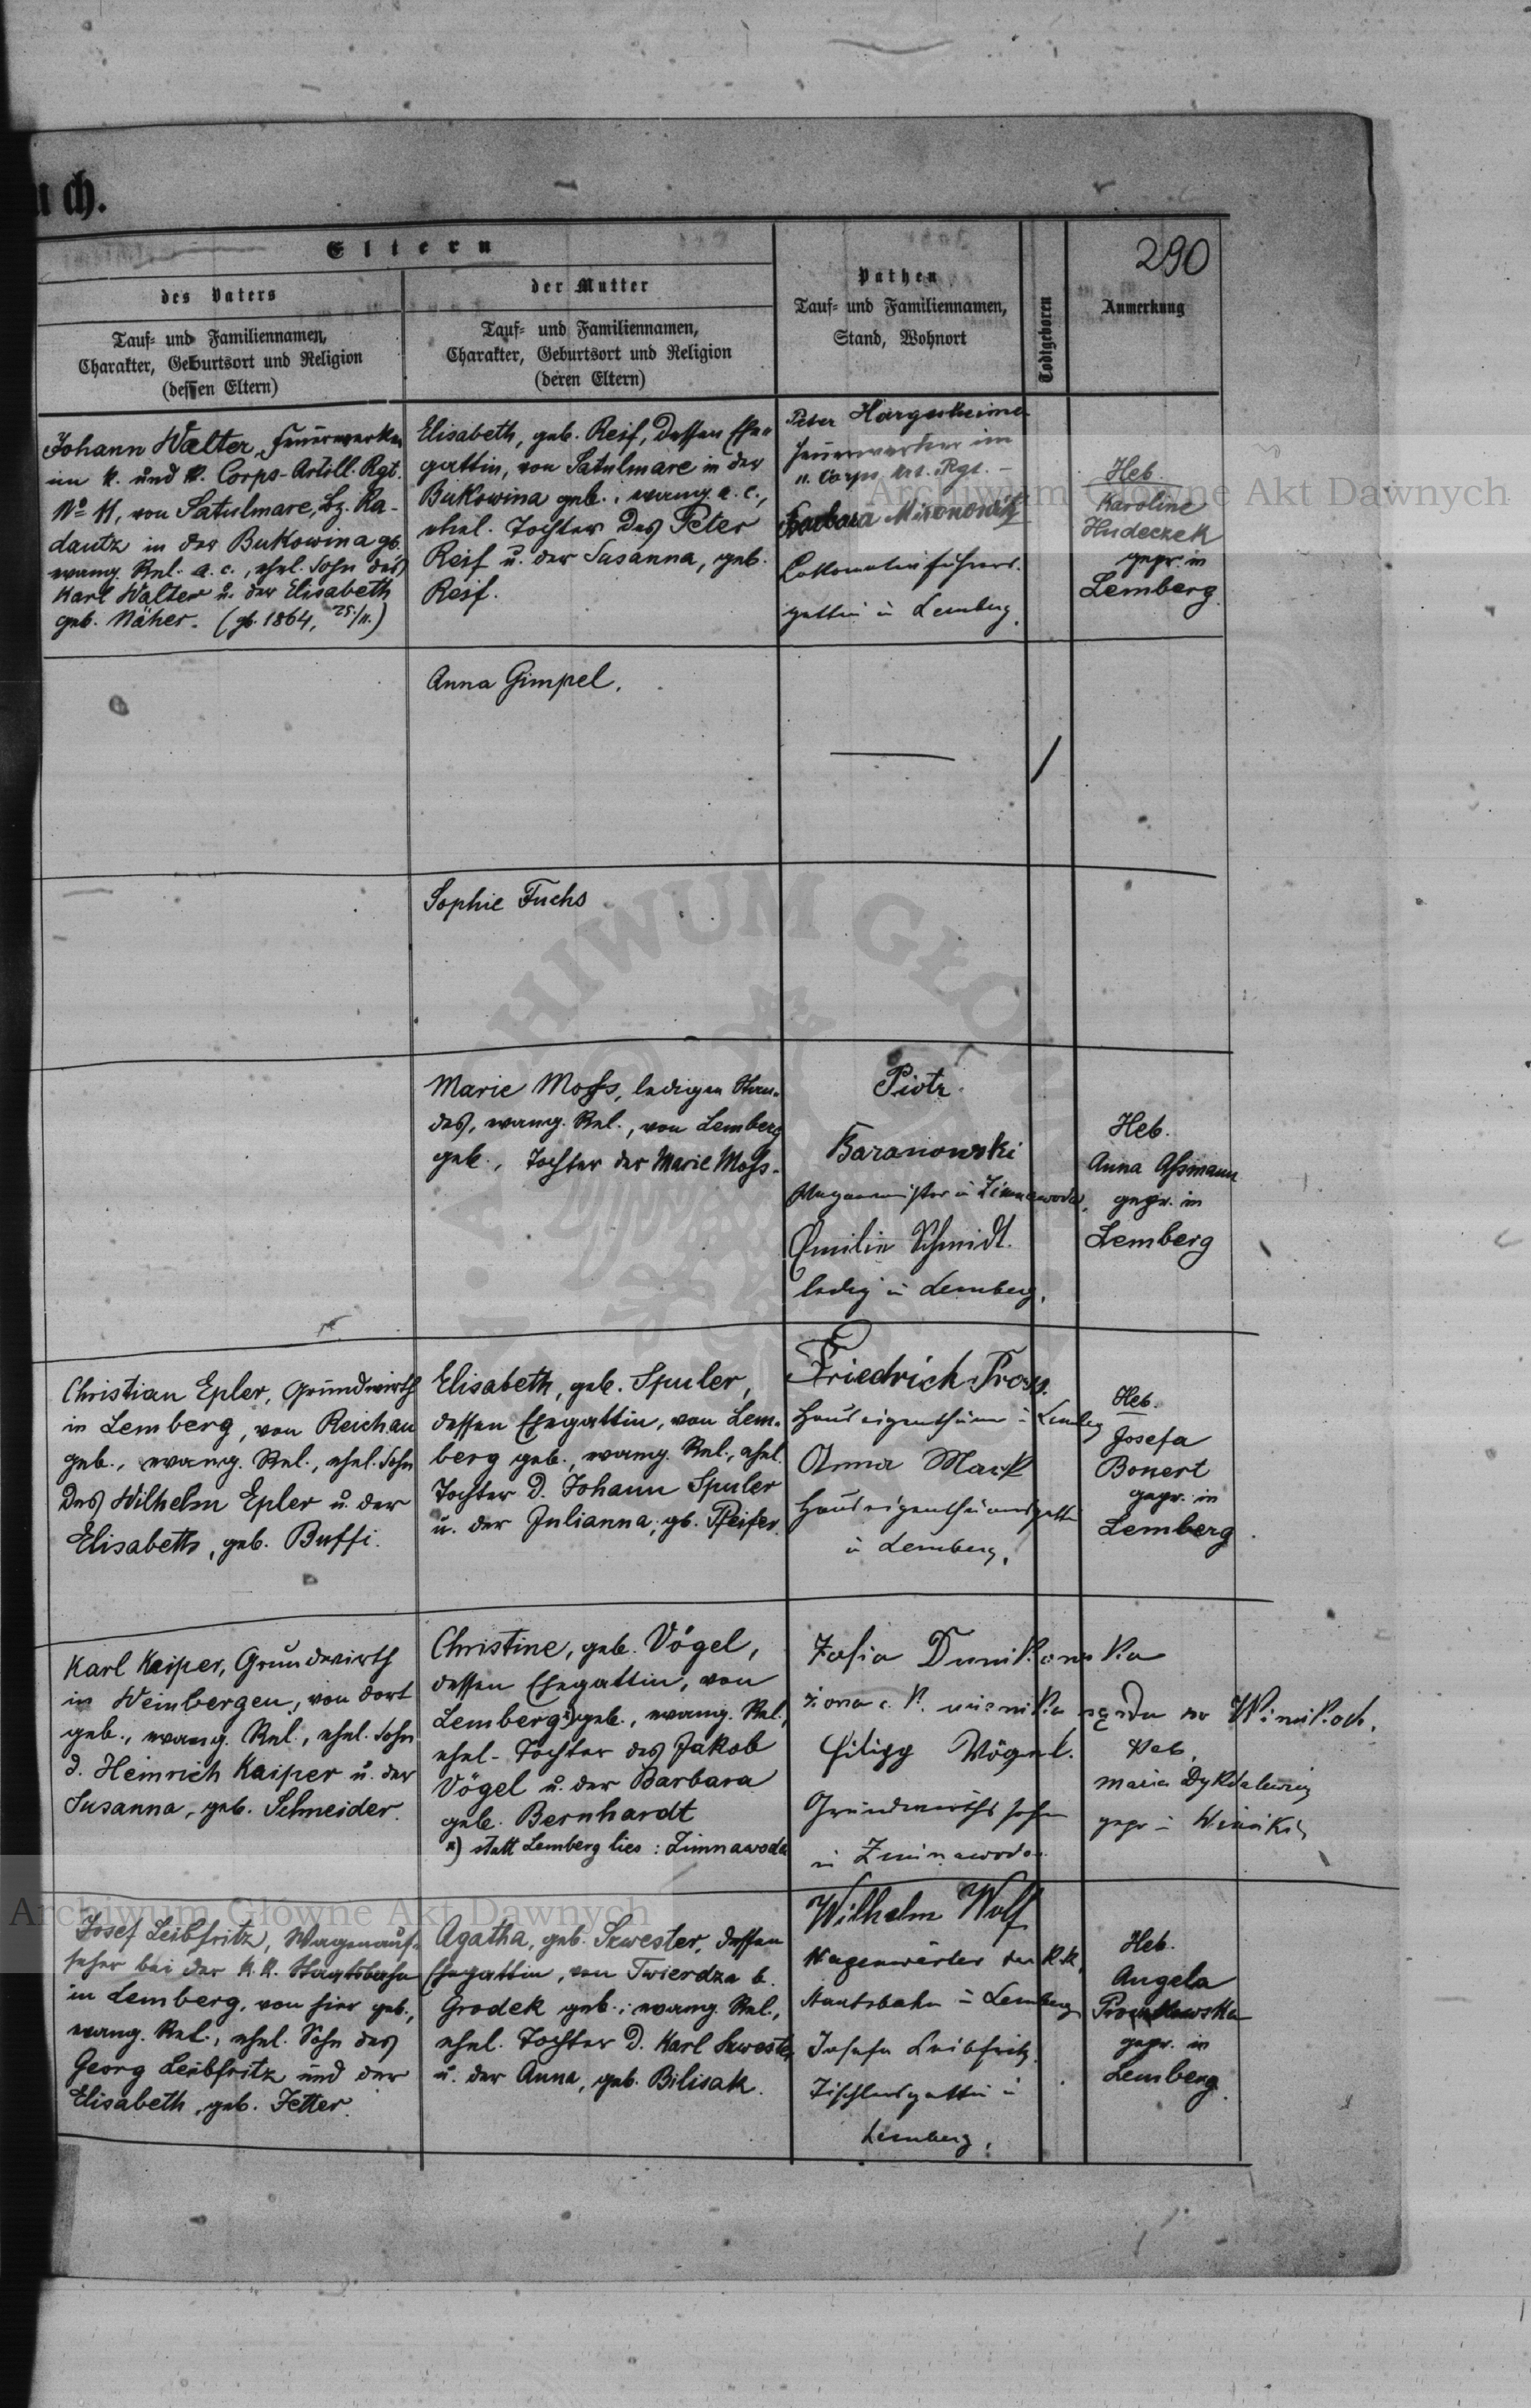 uch.
290
Eltern
des Vaters
der Mutter
Pathen
Todtgeboren
Anmerkung
Tauf- und Familiennamen,
Charakter, Geburtsort und Religion
(dessen Eltern)
Tauf- und Familiennamen,
Charakter, Geburtsort und Religion
(deren Eltern)
Tauf- und Familiennamen,
Stand, Wohnort
Johann Walter, Feuerwerker
im k. und k. Corps-Artill. Rgt.
No 11, von Satulmare, Bz. Ra-
dautz in der Bukowina gb.
evang. Rel. a. c., ehel. Sohn des
Karl Walter u. der Elisabeth
geb. Näher. (gb. 1864, 25./11.)
Elisabeth, geb. Reif, dessen Ehe-
gattin, von Satulmare in der
Bukowina geb., evang. a. c.,
ehel. Tochter des Peter
Reif u. der Susanna, geb.
Reif.
Peter Hargesheimer
Feuerwerker im
11. Corps Art. Rgt. –
Barbara
Lokomotivführers-
gattin in Lemberg.
Heb.
Karoline
Hudeczek
gepr. in
Lemberg.
Anna Gimpel.
Sophie Fuchs
Marie Moss, ledigen Stan-
des, evang. Rel., von Lemberg
geb., Tochter der Marie Moss.
Piotr
Baranowski
in Zimnawoda.
Emilie Schmidt.
ledig in Lemberg.
Heb.
Anna Assmann
gepr. in
Lemberg
Christian Epler, Grundwirth
in Lemberg, von Reichau
geb., evang. Rel., ehel. Sohn
des Wilhelm Epler u. der
Elisabeth, geb. Buffi.
Elisabeth, geb. Spuler,
dessen Ehegattin, von Lem-
berg geb., evang. Rel., ehel.
Tochter d. Johann Spuler
u. der Julianna, gb. Pfeifer.
Friedrich Pross.
Hauseigenthümer in Lemberg
Anna Mark
Hauseigenthümersgattin
in Lemberg.
Heb.
Josefa
Bonert
gepr. in
Lemberg.
Karl Kaiper, Grundwirth
in Weinbergen, von dort
geb., evang. Rel., ehel. Sohn
d. Heinrich Kaiper u. der
Susanna, geb. Schneider.
Christine, geb. Vögel,
dessen Ehegattin, von
Lemberg x) geb., evang. Rel.,
ehel. Tochter des Jakob
Vögel u. der Barbara
geb. Bernhardt
x) statt Lemberg lies: Zimnawoda
Zofia Dunikowska
żona c. k. sądu w Winnikach.
Filipp Vögel.
Grundwirthssohn
in Zimnawoda.
Heb.
Maria
gepr. in Winniki
Josef Leibfritz, Wagenauf-
seher bei der k. k. Staatsbahn
in Lemberg, von hier geb.,
evang. Rel., ehel. Sohn des
Georg Leibfritz und der
Elisabeth, geb. Jetter.
Agatha, geb. Szwester, dessen
Ehegattin, von Twierdza b.
Grodek geb., evang. Rel.,
ehel. Tochter d. Karl Szwester
u. der Anna, geb. Bilisak.
Wilhelm Wolf
Wagenwärter der k.k.
Staatsbahn in Lemberg
Josefa Leibfritz.
Tischlersgattin in
Lemberg.
Heb.
Angela
gepr. in
Lemberg.
Archiwum Główne Akt Dawnych
Archiwum Główne Akt Dawnych